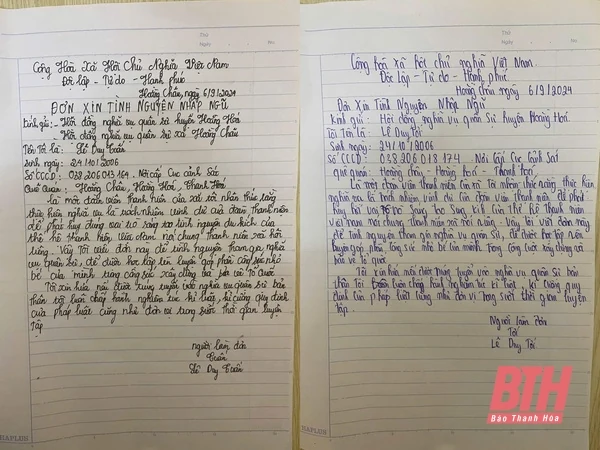 Thứ
Ngày No
Cộng Hoà Xã Hội Chủ Nghĩa Việt Nam
Độc lập - Tự do - Hạnh phúc
Hoằng Châu, ngày 6/9/2024
ĐƠN XIN TÌNH NGUYỆN NHẬP NGŨ
Kính gửi: - Hội đồng nghĩa vụ quân sự huyện Hoằng Hoá
- Hội đồng nghĩa vụ quân sự xã Hoằng Châu
Tên Tôi là: Lê Duy Tuấn
Sinh ngày: 24.10.2006
Số CCCD: 038 206 013 164. Nơi cấp Cục Cảnh Sát
Quê Quán: Hoằng Châu, Hoằng Hoá, Thanh Hoá
là một đoàn viên thanh niên của xã tôi nhận thức rằng
thực hiện nghĩa vụ là trách nhiệm vinh dự của đoàn thanh niên
để phát huy đúng vai trò sáng tạo tình nguyện du kích của
thế hệ thanh niên Việt Nam nói chung thanh niên xã nói
riêng. Vậy Tôi viết đơn này để tình nguyện tham gia nghĩa
vụ quân sự, để được học tập rèn luyện góp phần công sức nhỏ
bé của mình trong công cuộc xây dựng bảo vệ Tổ Quốc
Tôi xin hứa nếu được trúng tuyển vào nghĩa vụ quân sự bản
thân tôi luôn chấp hành nghiêm túc kỉ luật, kỉ cương quy định
của pháp luật cũng như đơn vị trong suốt thời gian luyện
tập
người làm đơn
Tuấn
Lê Duy Tuấn
HAPLUS
Thứ
Ngày No
Cộng hoà xã hội chủ nghĩa Việt Nam
Độc lập - Tự do - Hạnh phúc
Hoằng Châu ngày 6/9/2024
Đơn Xin Tình Nguyện Nhập Ngũ
Kính gửi: Hội đồng nghĩa vụ quân sự huyện Hoằng Hoá
Tôi Tên Là: Lê Duy Tới
Sinh ngày: 24/10/2006
Số CCCD: 038 206 013 174. Nơi cấp Cục Cảnh Sát
quê quán: Hoằng Châu - Hoằng Hoá - Thanh Hoá
Là một đoàn viên thanh niên của xã Tôi nhận thức rằng thực hiện
nghĩa vụ là trách nhiệm vinh dự của đoàn thanh niên. Để phát
huy vai trò Sáng tạo Xung kích của thế hệ thanh niên
việt nam nói chung thanh niên xã nói riêng. Vậy tôi viết đơn này
để tình nguyện tham gia nghĩa vụ quân sự, để được học tập rèn
luyện góp phần công sức nhỏ bé của mình trong công cuộc xây dựng và
bảo vệ tổ quốc
Tôi xin hứa nếu được trúng tuyển vào nghĩa vụ quân sự bản
thân Tôi luôn chấp hành nghiêm túc kỉ luật, kỉ cương quy
định của pháp luật cũng như đơn vị trong suốt thời gian luyện
tập
Người làm đơn
Tới
Lê Duy Tới
HAPLUS
BTH
Báo Thanh Hóa